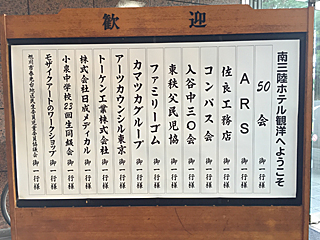 歓迎
南三陸ホテル観洋へようこそ
50会 御一行様
ARS 御一行様
佐良工務店 御一行様
コンパス会 御一行様
入谷中三〇会 御一行様
東秩父民児協 御一行様
ファミリーゴム 御一行様
カマツカグループ 御一行様
アーツカウンシル東京 御一行様
トーケン工業株式会社 御一行様
株式会社日成メディカル 御一行様
小泉中学校23回生同級会 御一行様
モザイクアートのワークショップ 御一行様
旭川市春光台地区民生委員児童委員協議会 御一行様